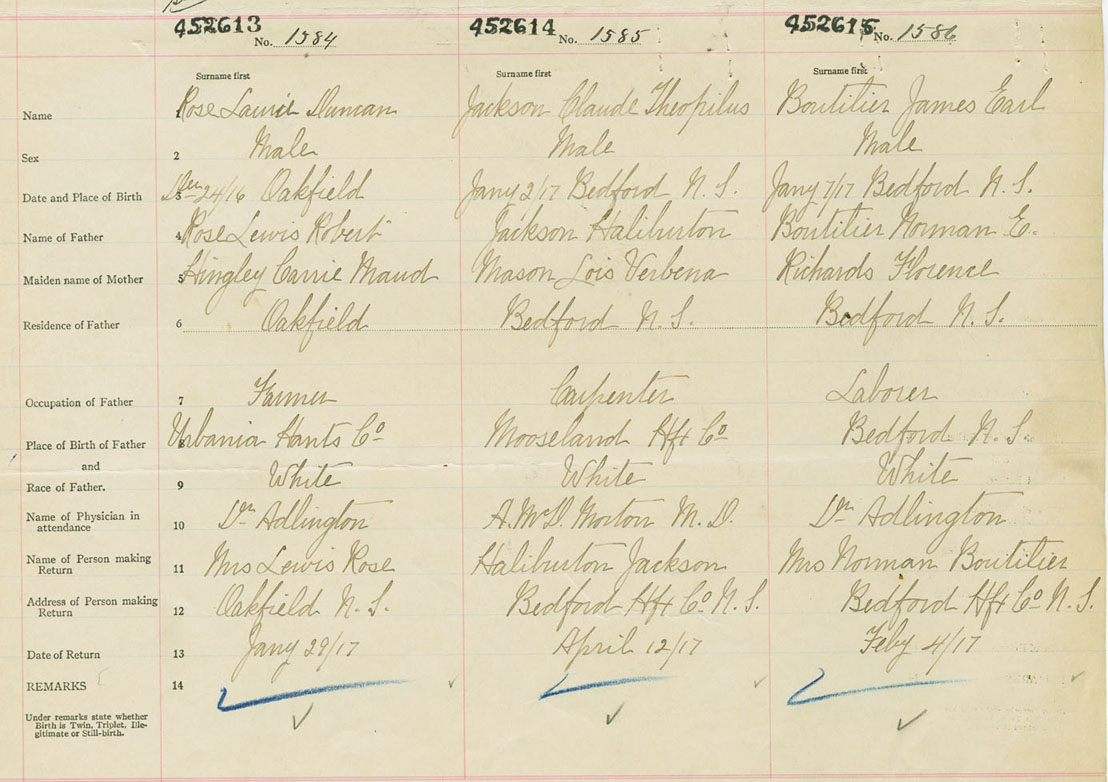 452613 No. 1584 452614 No. 1585 452615 No. 1586
Surname first Surname first Surname first
Name 1 Rose Laurie Duncan Jackson Claude Theopilus Boutilier James Earl
Sex 2 Male Male Male
Date and Place of Birth 3 Dec 24/16 Oakfield Jany 2/17 Bedford N.S. Jany 7/17 Bedford N.S.
Name of Father 4 Rose Lewis Robert Jackson Haliburton Boutilier Norman E.
Maiden name of Mother 5 Hingley Carrie Maud Mason Lois Verbena Richards Florence
Residence of Father 6 Oakfield Bedford N.S. Bedford N.S.
Occupation of Father 7 Farmer Carpenter Laborer
Place of Birth of Father 8 Urbania Hants Co Mooseland Hfx Co Bedford N.S.
and
Race of Father. 9 White White White
Name of Physician in
attendance 10 Dr Adlington A. McD. Morton M.D. Dr Adlington
Name of Person making
Return 11 Mrs Lewis Rose Haliburton Jackson Mrs Norman Boutilier
Address of Person making
Return 12 Oakfield N.S. Bedford Hfx Co N.S. Bedford Hfx Co N.S.
Date of Return 13 Jany 29/17 April 12/17 Feby 4/17
REMARKS 14
Under remarks state whether
Birth is Twin, Triplet, Ille-
gitimate or Still-birth.